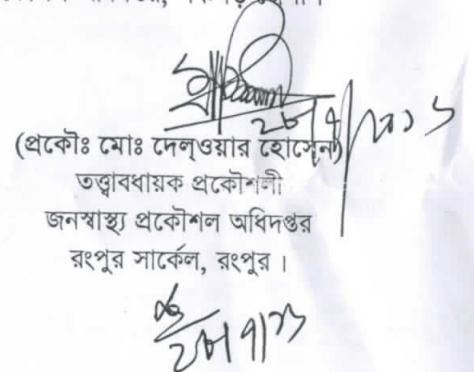 ২৮/৭/২০২১
(প্রকৌঃ মোঃ দেলওয়ার হোসেন)
তত্ত্বাবধায়ক প্রকৌশলী
জনস্বাস্থ্য প্রকৌশল অধিদপ্তর
রংপুর সার্কেল, রংপুর ।
২৮/৭/২১